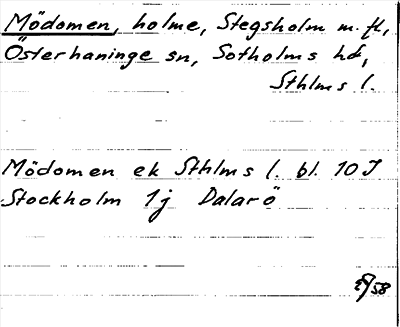 Mödomen, holme, Stegsholm m. fl,
Österhaninge sn, Sotholms hd,
Sthlms l.
Mödomen ek Sthlms l. bl. 10 J
Stockholm 1j Dalarö
58